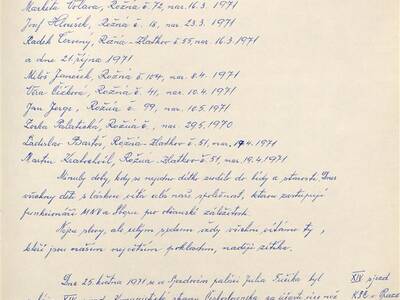 Markéta Volavá, Rožná č. 72, nar. 16.3. 1971
Josef Hloušek, Rožná č. 18, nar. 23.3. 1971
Radek Červený, Rožná-Zlatkov č. 55, nar. 16.3 1971
a dne 21. října 1971
Miloš Janeček, Rožná č. 104, nar. 8.4. 1971
Věra Čížková, Rožná č. 41, nar. 10.4. 1971
Jan Jerge, Rožná č. 99, nar. 10.5. 1971
Zorka Palatická, Rožná č. , nar. 29.5. 1970
Ladislav Bartoš, Rožná-Zlatkov č. 51, nar. 19.4. 1971
Martin Kratochvíl, Rožná-Zlatkov č. 51, nar. 19.4. 1971
Minuly doby, kdy se nejedno dítko zrodilo do bídy a starosti. Dnes
všechny děti s láskou vítá celá naše společnost, kterou zastupují
funkcionáři MNV a Sboru pro občanské záležitosti.
Nejen slovy, ale celým srdcem vždy všichni vítáme ty,
kteří jsou naším největším pokladem nadějí zítřka.
Dne 25. května 1971 se v Bazdovém paláci Julia Fučíka byl
XIV. sjezd
XIV. Komunistické strany Československa za účasti
KSČ v Praze